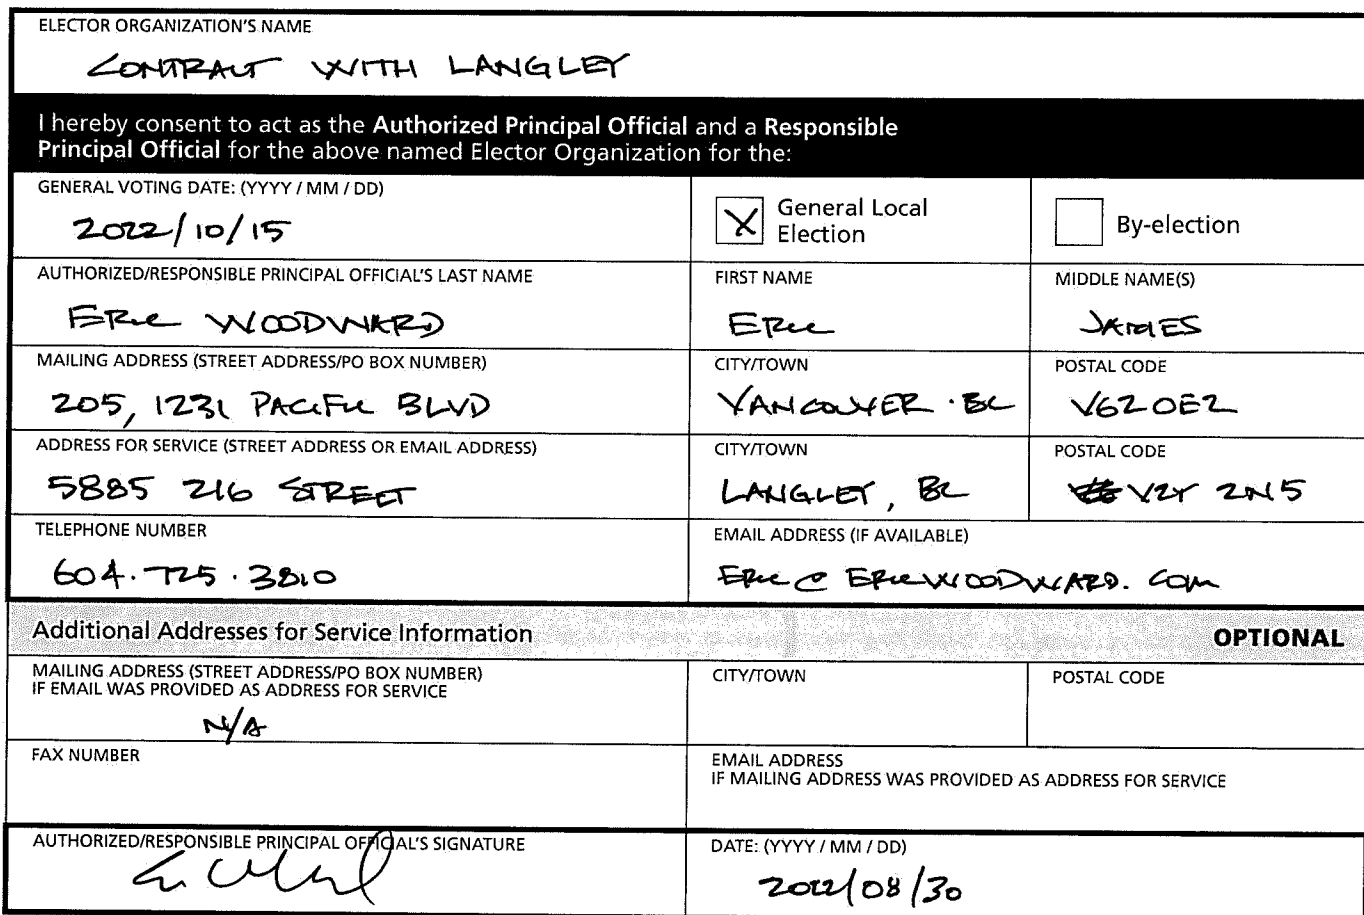 ELECTOR ORGANIZATION'S NAME
CONTRACT WITH LANGLEY
I hereby consent to act as the Authorized Principal Official and a Responsible
Principal Official for the above named Elector Organization for the:
GENERAL VOTING DATE: (YYYY / MM / DD)
2022/10/15
X General Local
Election
By-election
AUTHORIZED/RESPONSIBLE PRINCIPAL OFFICIAL'S LAST NAME
ERIC WOODWARD
FIRST NAME
ERIC
MIDDLE NAME(S)
JAMES
MAILING ADDRESS (STREET ADDRESS/PO BOX NUMBER)
205, 1231 PACIFIC BLVD
CITY/TOWN
VANCOUVER. BC
POSTAL CODE
V6Z0E2
ADDRESS FOR SERVICE (STREET ADDRESS OR EMAIL ADDRESS)
5885 216 STREET
CITY/TOWN
LANGLEY, BC
POSTAL CODE
V2Y 2N5
TELEPHONE NUMBER
604.725.3810
EMAIL ADDRESS (IF AVAILABLE)
ERIC@ERICWOODWARD.COM
Additional Addresses for Service Information
OPTIONAL
MAILING ADDRESS (STREET ADDRESS/PO BOX NUMBER)
IF EMAIL WAS PROVIDED AS ADDRESS FOR SERVICE
N/A
CITY/TOWN
POSTAL CODE
FAX NUMBER
EMAIL ADDRESS
IF MAILING ADDRESS WAS PROVIDED AS ADDRESS FOR SERVICE
AUTHORIZED/RESPONSIBLE PRINCIPAL OFFICIAL'S SIGNATURE
DATE: (YYYY / MM / DD)
2022/08/30